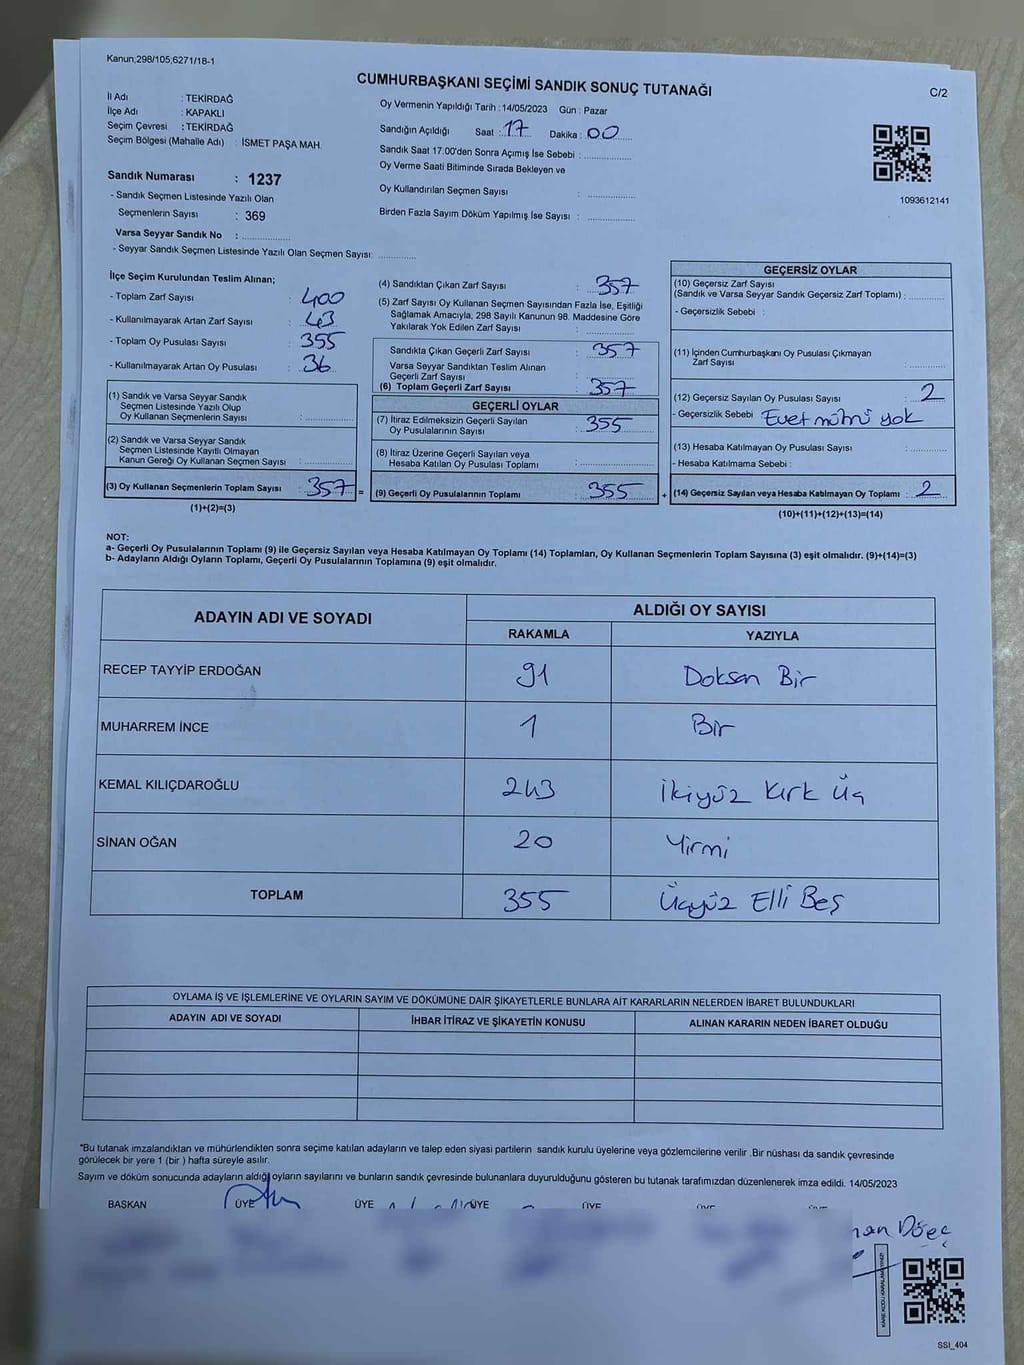 Kanun,298/105,6271/18-1
CUMHURBAŞKANI SEÇİMİ SANDIK SONUÇ TUTANAĞI
C/2
İl Adı : TEKİRDAĞ
İlçe Adı : KAPAKLI
Seçim Çevresi : TEKİRDAĞ
Seçim Bölgesi (Mahalle Adı) : İSMET PAŞA MAH.
Sandık Numarası : 1237
- Sandık Seçmen Listesinde Yazılı Olan
Seçmenlerin Sayısı : 369
Varsa Seyyar Sandık No :
- Seyyar Sandık Seçmen Listesinde Yazılı Olan Seçmen Sayısı:
Oy Vermenin Yapıldığı Tarih : 14/05/2023 Gün : Pazar
Sandığın Açıldığı Saat : 17 Dakika : 00
Sandık Saat 17:00'den Sonra Açımış İse Sebebi :
Oy Verme Saati Bitiminde Sırada Bekleyen ve
Oy Kullandırılan Seçmen Sayısı :
Birden Fazla Sayım Döküm Yapılmış İse Sayısı :
1093612141
İlçe Seçim Kurulundan Teslim Alınan;
- Toplam Zarf Sayısı : 400
- Kullanılmayarak Artan Zarf Sayısı : 43
- Toplam Oy Pusulası Sayısı : 355
- Kullanılmayarak Artan Oy Pusulası : 36
(1) Sandık ve Varsa Seyyar Sandık
Seçmen Listesinde Yazılı Olup
Oy Kullanan Seçmenlerin Sayısı :
(2) Sandık ve Varsa Seyyar Sandık
Seçmen Listesinde Kayıtlı Olmayan
Kanun Gereği Oy Kullanan Seçmen Sayısı :
(3) Oy Kullanan Seçmenlerin Toplam Sayısı : 357 =
(1)+(2)=(3)
(4) Sandıktan Çıkan Zarf Sayısı : 357
(5) Zarf Sayısı Oy Kullanan Seçmen Sayısından Fazla İse, Eşitliği
Sağlamak Amacıyla, 298 Sayılı Kanunun 98. Maddesine Göre
Yakılarak Yok Edilen Zarf Sayısı :
Sandıkta Çıkan Geçerli Zarf Sayısı : 357
Varsa Seyyar Sandıktan Teslim Alınan
Geçerli Zarf Sayısı :
(6) Toplam Geçerli Zarf Sayısı : 357
GEÇERLİ OYLAR
(7) İtiraz Edilmeksizin Geçerli Sayılan
Oy Pusulalarının Sayısı : 355
(8) İtiraz Üzerine Geçerli Sayılan veya
Hesaba Katılan Oy Pusulası Toplamı :
(9) Geçerli Oy Pusulalarının Toplamı : 355 +
GEÇERSİZ OYLAR
(10) Geçersiz Zarf Sayısı
(Sandık ve Varsa Seyyar Sandık Geçersiz Zarf Toplamı) :
- Geçersizlik Sebebi :
(11) İçinden Cumhurbaşkanı Oy Pusulası Çıkmayan
Zarf Sayısı :
(12) Geçersiz Sayılan Oy Pusulası Sayısı : 2
- Geçersizlik Sebebi : Evet mührü yok
(13) Hesaba Katılmayan Oy Pusulası Sayısı :
- Hesaba Katılmama Sebebi :
(14) Geçersiz Sayılan veya Hesaba Katılmayan Oy Toplamı : 2
(10)+(11)+(12)+(13)=(14)
NOT:
a- Geçerli Oy Pusulalarının Toplamı (9) ile Geçersiz Sayılan veya Hesaba Katılmayan Oy Toplamı (14) Toplamları, Oy Kullanan Seçmenlerin Toplam Sayısına (3) eşit olmalıdır. (9)+(14)=(3)
b- Adayların Aldığı Oyların Toplamı, Geçerli Oy Pusulalarının Toplamına (9) eşit olmalıdır.
ADAYIN ADI VE SOYADI
ALDIĞI OY SAYISI
RAKAMLA YAZIYLA
RECEP TAYYİP ERDOĞAN 91 Doksan Bir
MUHARREM İNCE 1 Bir
KEMAL KILIÇDAROĞLU 243 İkiyüz Kırk Üç
SİNAN OĞAN 20 Yirmi
TOPLAM 355 Üçyüz Elli Beş
OYLAMA İŞ VE İŞLEMLERİNE VE OYLARIN SAYIM VE DÖKÜMÜNE DAİR ŞİKAYETLERLE BUNLARA AİT KARARLARIN NELERDEN İBARET BULUNDUKLARI
ADAYIN ADI VE SOYADI İHBAR İTİRAZ VE ŞİKAYETİN KONUSU ALINAN KARARIN NEDEN İBARET OLDUĞU
*Bu tutanak imzalandıktan ve mühürlendikten sonra seçime katılan adayların ve talep eden siyasi partilerin sandık kurulu üyelerine veya gözlemcilerine verilir .Bir nüshası da sandık çevresinde
görülecek bir yere 1 (bir ) hafta süreyle asılır.
Sayım ve döküm sonucunda adayların aldığı oyların sayılarını ve bunların sandık çevresinde bulunanlara duyurulduğunu gösteren bu tutanak tarafımızdan düzenlenerek imza edildi. 14/05/2023
BAŞKAN ÜYE ÜYE ÜYE ÜYE
SSI_404